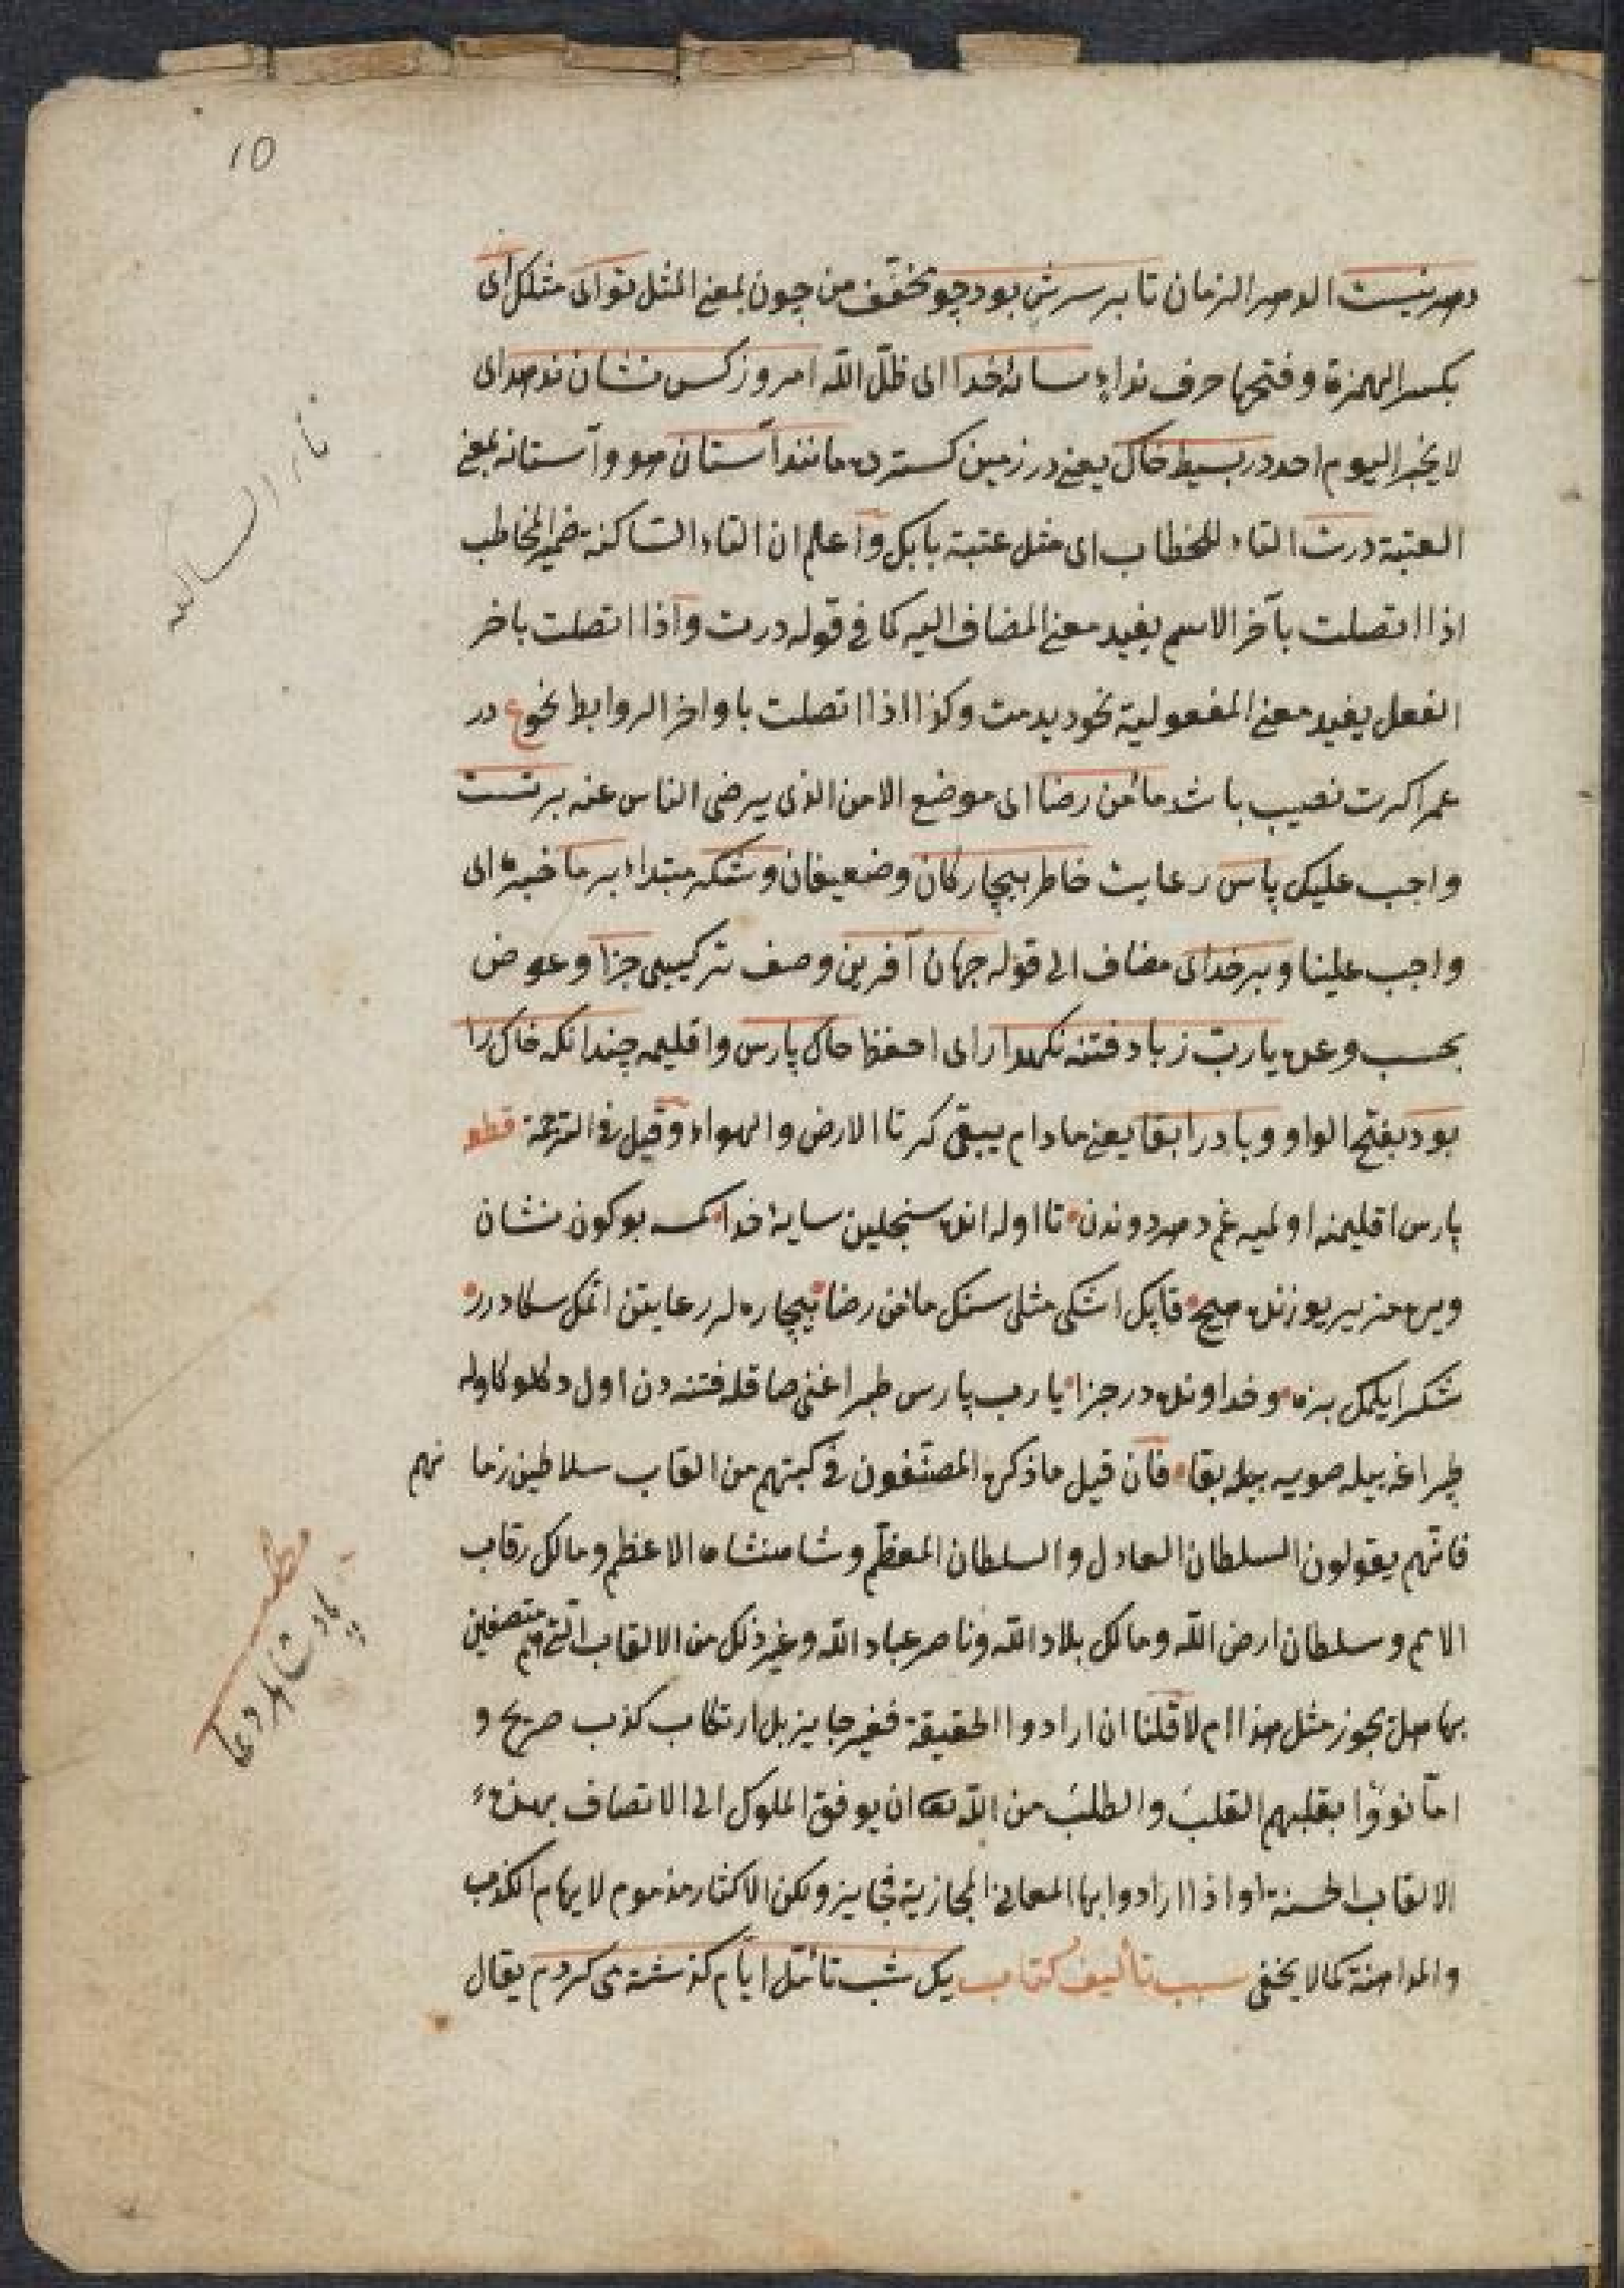 10
دهر نیست الدهر الزمان تا بر سرش بود چو مخفّف من چون بمعنى المثل تو اى مثلك اى
بكسر الهمزة وفتحها حرف نداء سایۀ خدا اى ظلّ اللّه امروز کس نشان ندهد اى
لا يخبر اليوم احد در بسیط خاک یعنى در زمین کسترده مانند آستان هو وآستانه بمعنى
العتبة درت التاء للخطاب اى مثل عتبة بابك واعلم ان التاء الساكنة ضمير المخاطب
اذا اتصلت بآخر الاسم يفيد معنى المضاف اليه كما فى قوله درت واذا اتصلت باخر
الفعل يفيد معنى المفعولية نحو دیدمت وكذا اذا اتصلت باواخر الروابط نحو ع در
عمر اکرت نصیب باشد مأمن رضا اى موضع الامن الذى يرضى الناس عنه بر تست
واجب عليك پاس رعایت خاطر بیچارکان وضعیفان وشکر مبتداء بر ما خبره اى
واجب علينا وبر خداى مضاف الى قوله جهان آفرین وصف تركيبى جزا وعوض
بحسب وعده یا ربّ ز باد فتنه نکهدار اى احفظ خاک پارس واقلیمه چندانکه خاک را
بود بفتح الواو وباد را بقا يعنى مادام يبقى كرتا الارض والهواء وقيل فى الترجمة قطعه
پارس اقلیمنه اولمیه غم دهر دوندن تا اوله انده سنجلین سایۀ خدا کمسه بوکون نشان
ویره مز یر یوزنده هیچ قاپک اشکى مثلى سنک مأمن رضا بیچاره لر رعایتن اتمک سکا درر
شکر ایلمک بزه وخداونده در جزا یا رب پارس طپراغنى صاقله فتنه دن اول دکلو کاوله
طپراغه یله صویه بله بقا فان قيل ما ذكره المصنّفون فى كتبهم من القاب سلاطين زمانهم
فانّهم يقولون السلطان العادل والسلطان المعظّم وشاهنشاه الاعظم ومالك رقاب
الامم وسلطان ارض اللّه ومالك بلاد اللّه وناصر عباد اللّه وغير ذلك من الالقاب التى هم متصفين
بها هل يجوز مثل هذا ام لا قلنا ان ارادوا الحقيقة فغير جايز بل ارتكاب كذب صريح و
امّا نووا بقلبهم القلب والطلب من اللّه تعالى ان يوفق الملوك الى الاتصاف بهذه
الالقاب الحسنة او اذا ارادوا بها المعانى المجازية فجايز ولكن الاكثار مذموم لايهام الكذب
والمداهنة كما لا يخفى سبب تأليف كتاب یک شب تأمّل ایّام کذشته مى کردم يقال
تاء الساكنه
مطلب
پادشاهلر دعا